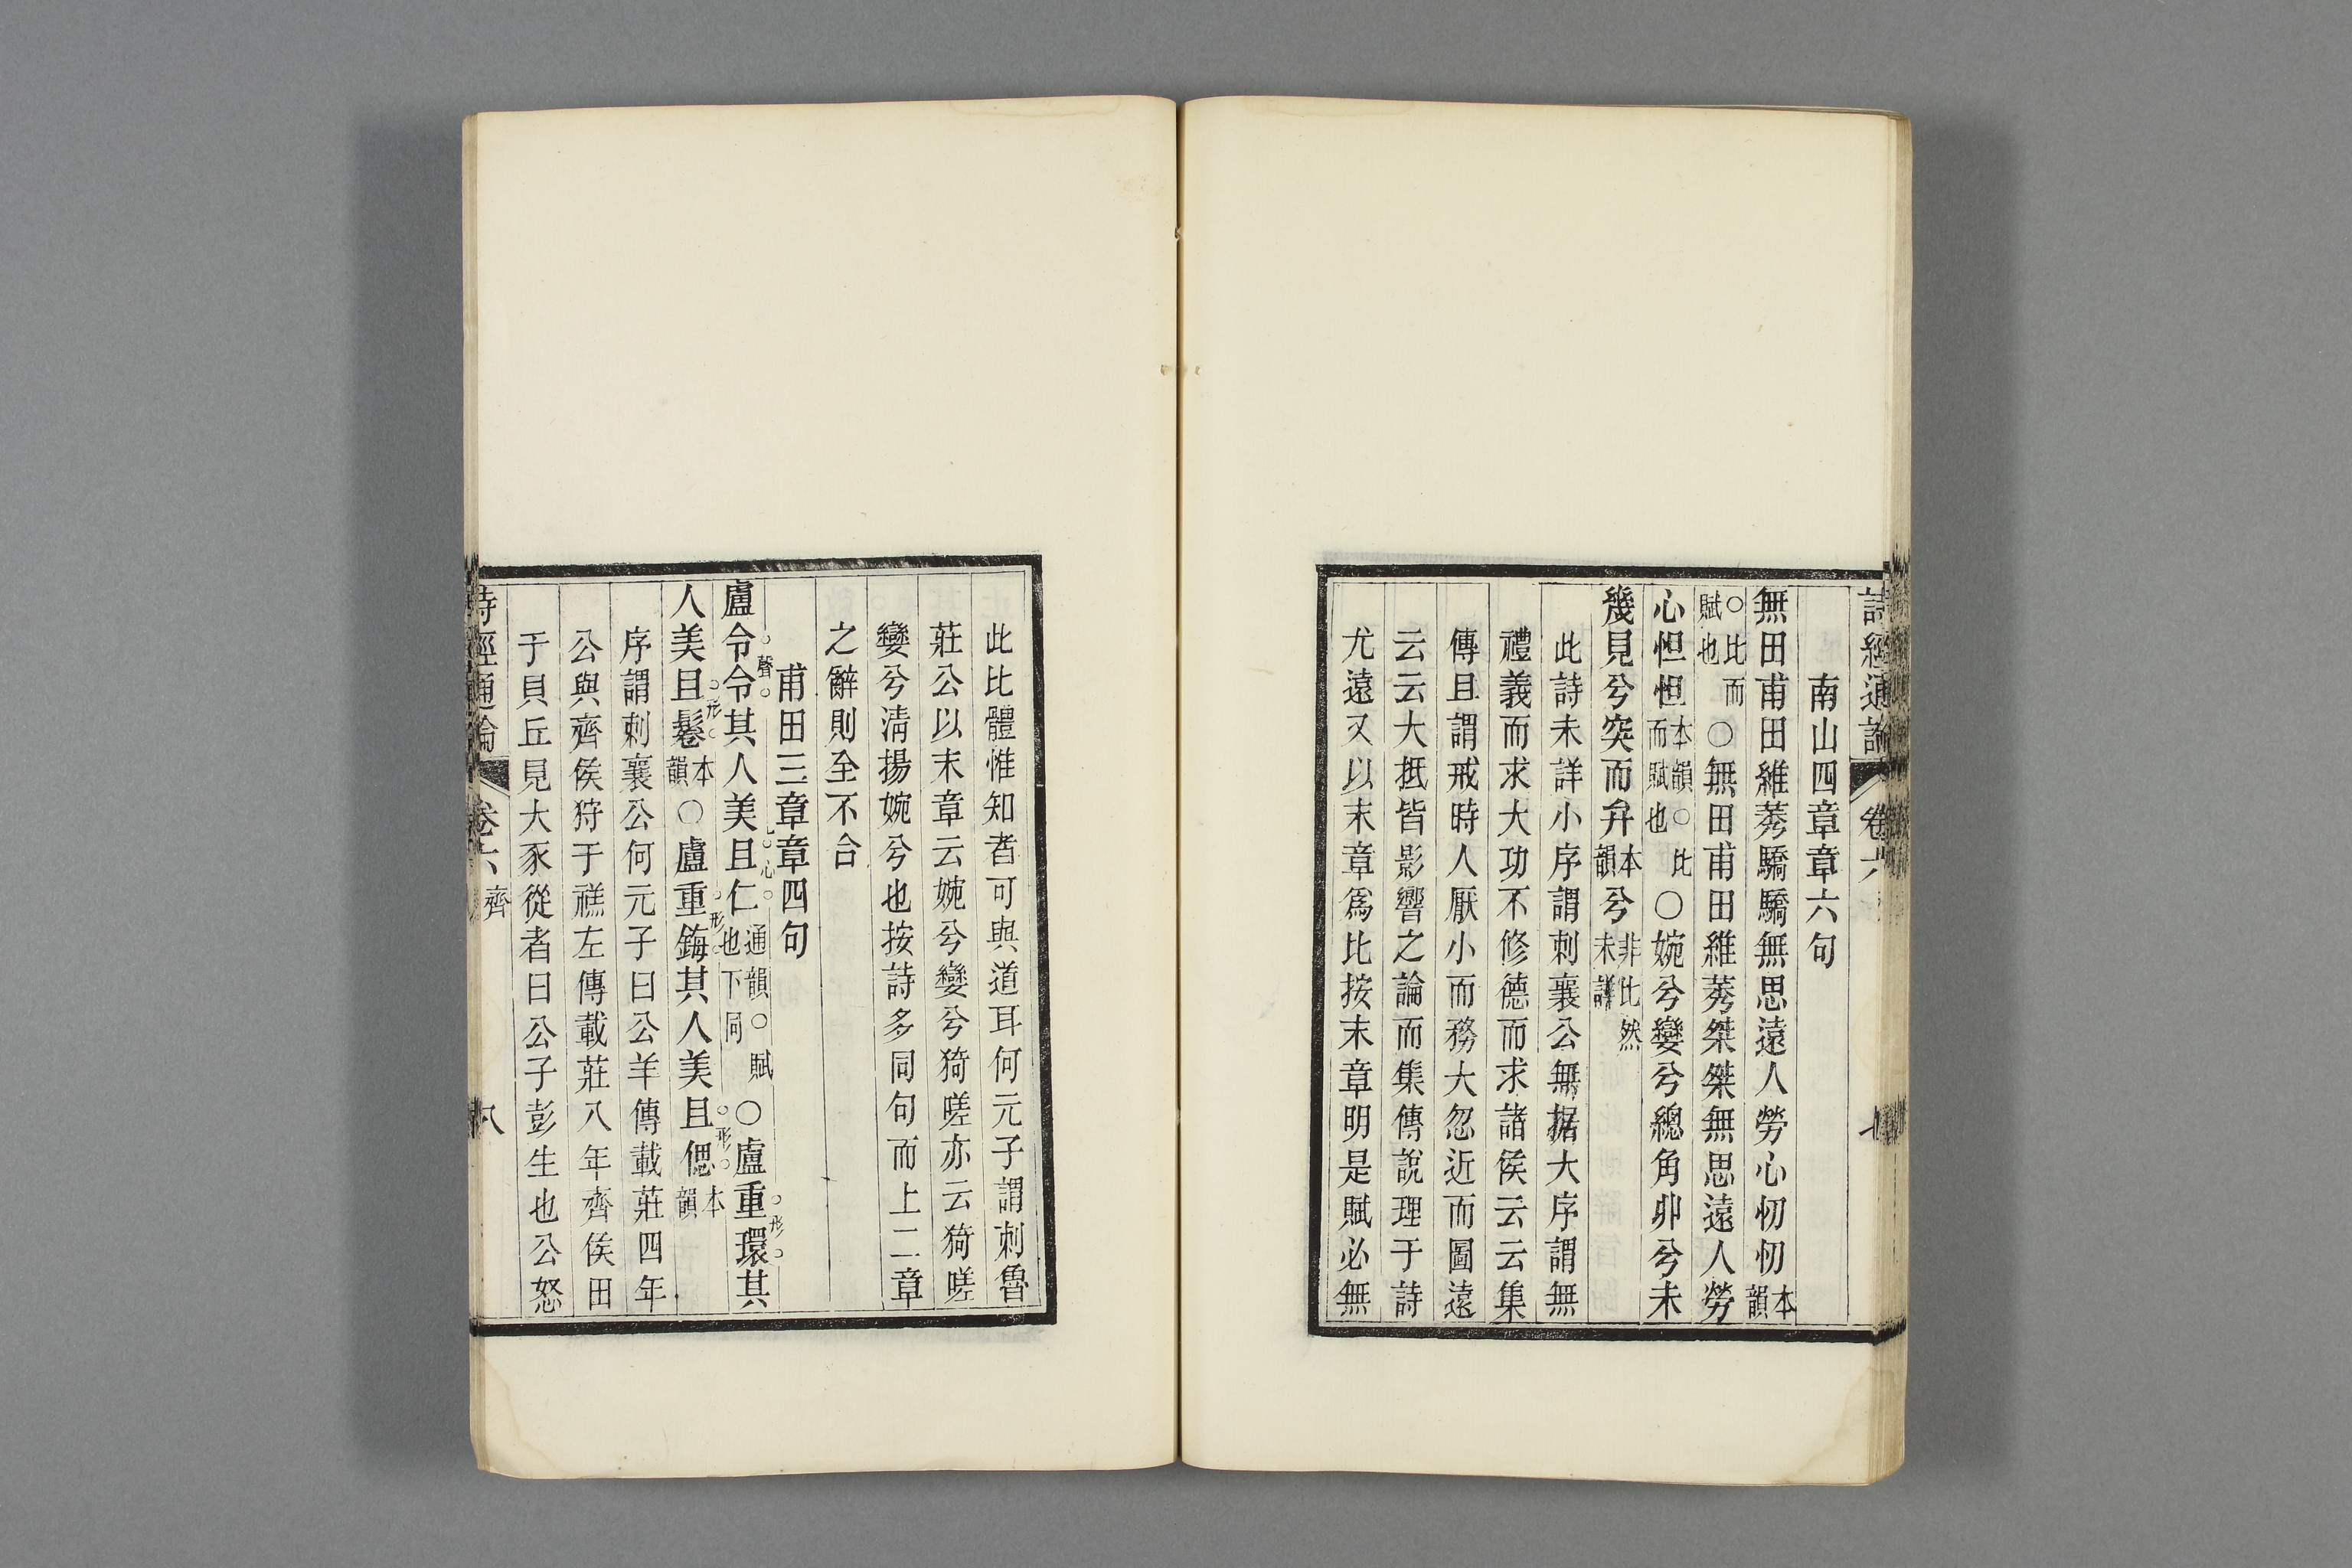 詩經通論 卷六
南山四章章六句
無田甫田維莠驕驕無思遠人勞心忉忉本韻
○比而賦也○無田甫田維莠桀桀無思遠人勞
心怛怛本韻○比而賦也○婉兮孌兮總角丱兮未
幾見兮突而弁本韻兮非比然未詳
此詩未詳小序謂刺襄公無据大序謂無
禮義而求大功不修德而求諸侯云云集
傳且謂戒時人厭小而務大忽近而圖遠
云云大抵皆影響之論而集傳說理于詩
尤遠又以末章爲比按末章明是賦必無
此比體惟知者可與道耳何元子謂刺魯
莊公以末章云婉兮孌兮猗嗟亦云猗嗟
孌兮清揚婉兮也按詩多同句而上二章
之辭則全不合
甫田三章章四句
盧令令聲其人美且仁心通韻○賦也下同○盧重環形其
人美且鬈形本韻○盧重鋂形其人美且偲形本韻
序謂刺襄公何元子曰公羊傳載莊四年
公與齊侯狩于禚左傳載莊八年齊侯田
于貝丘見大豕從者曰公子彭生也公怒
詩經通論 卷六 齊 八